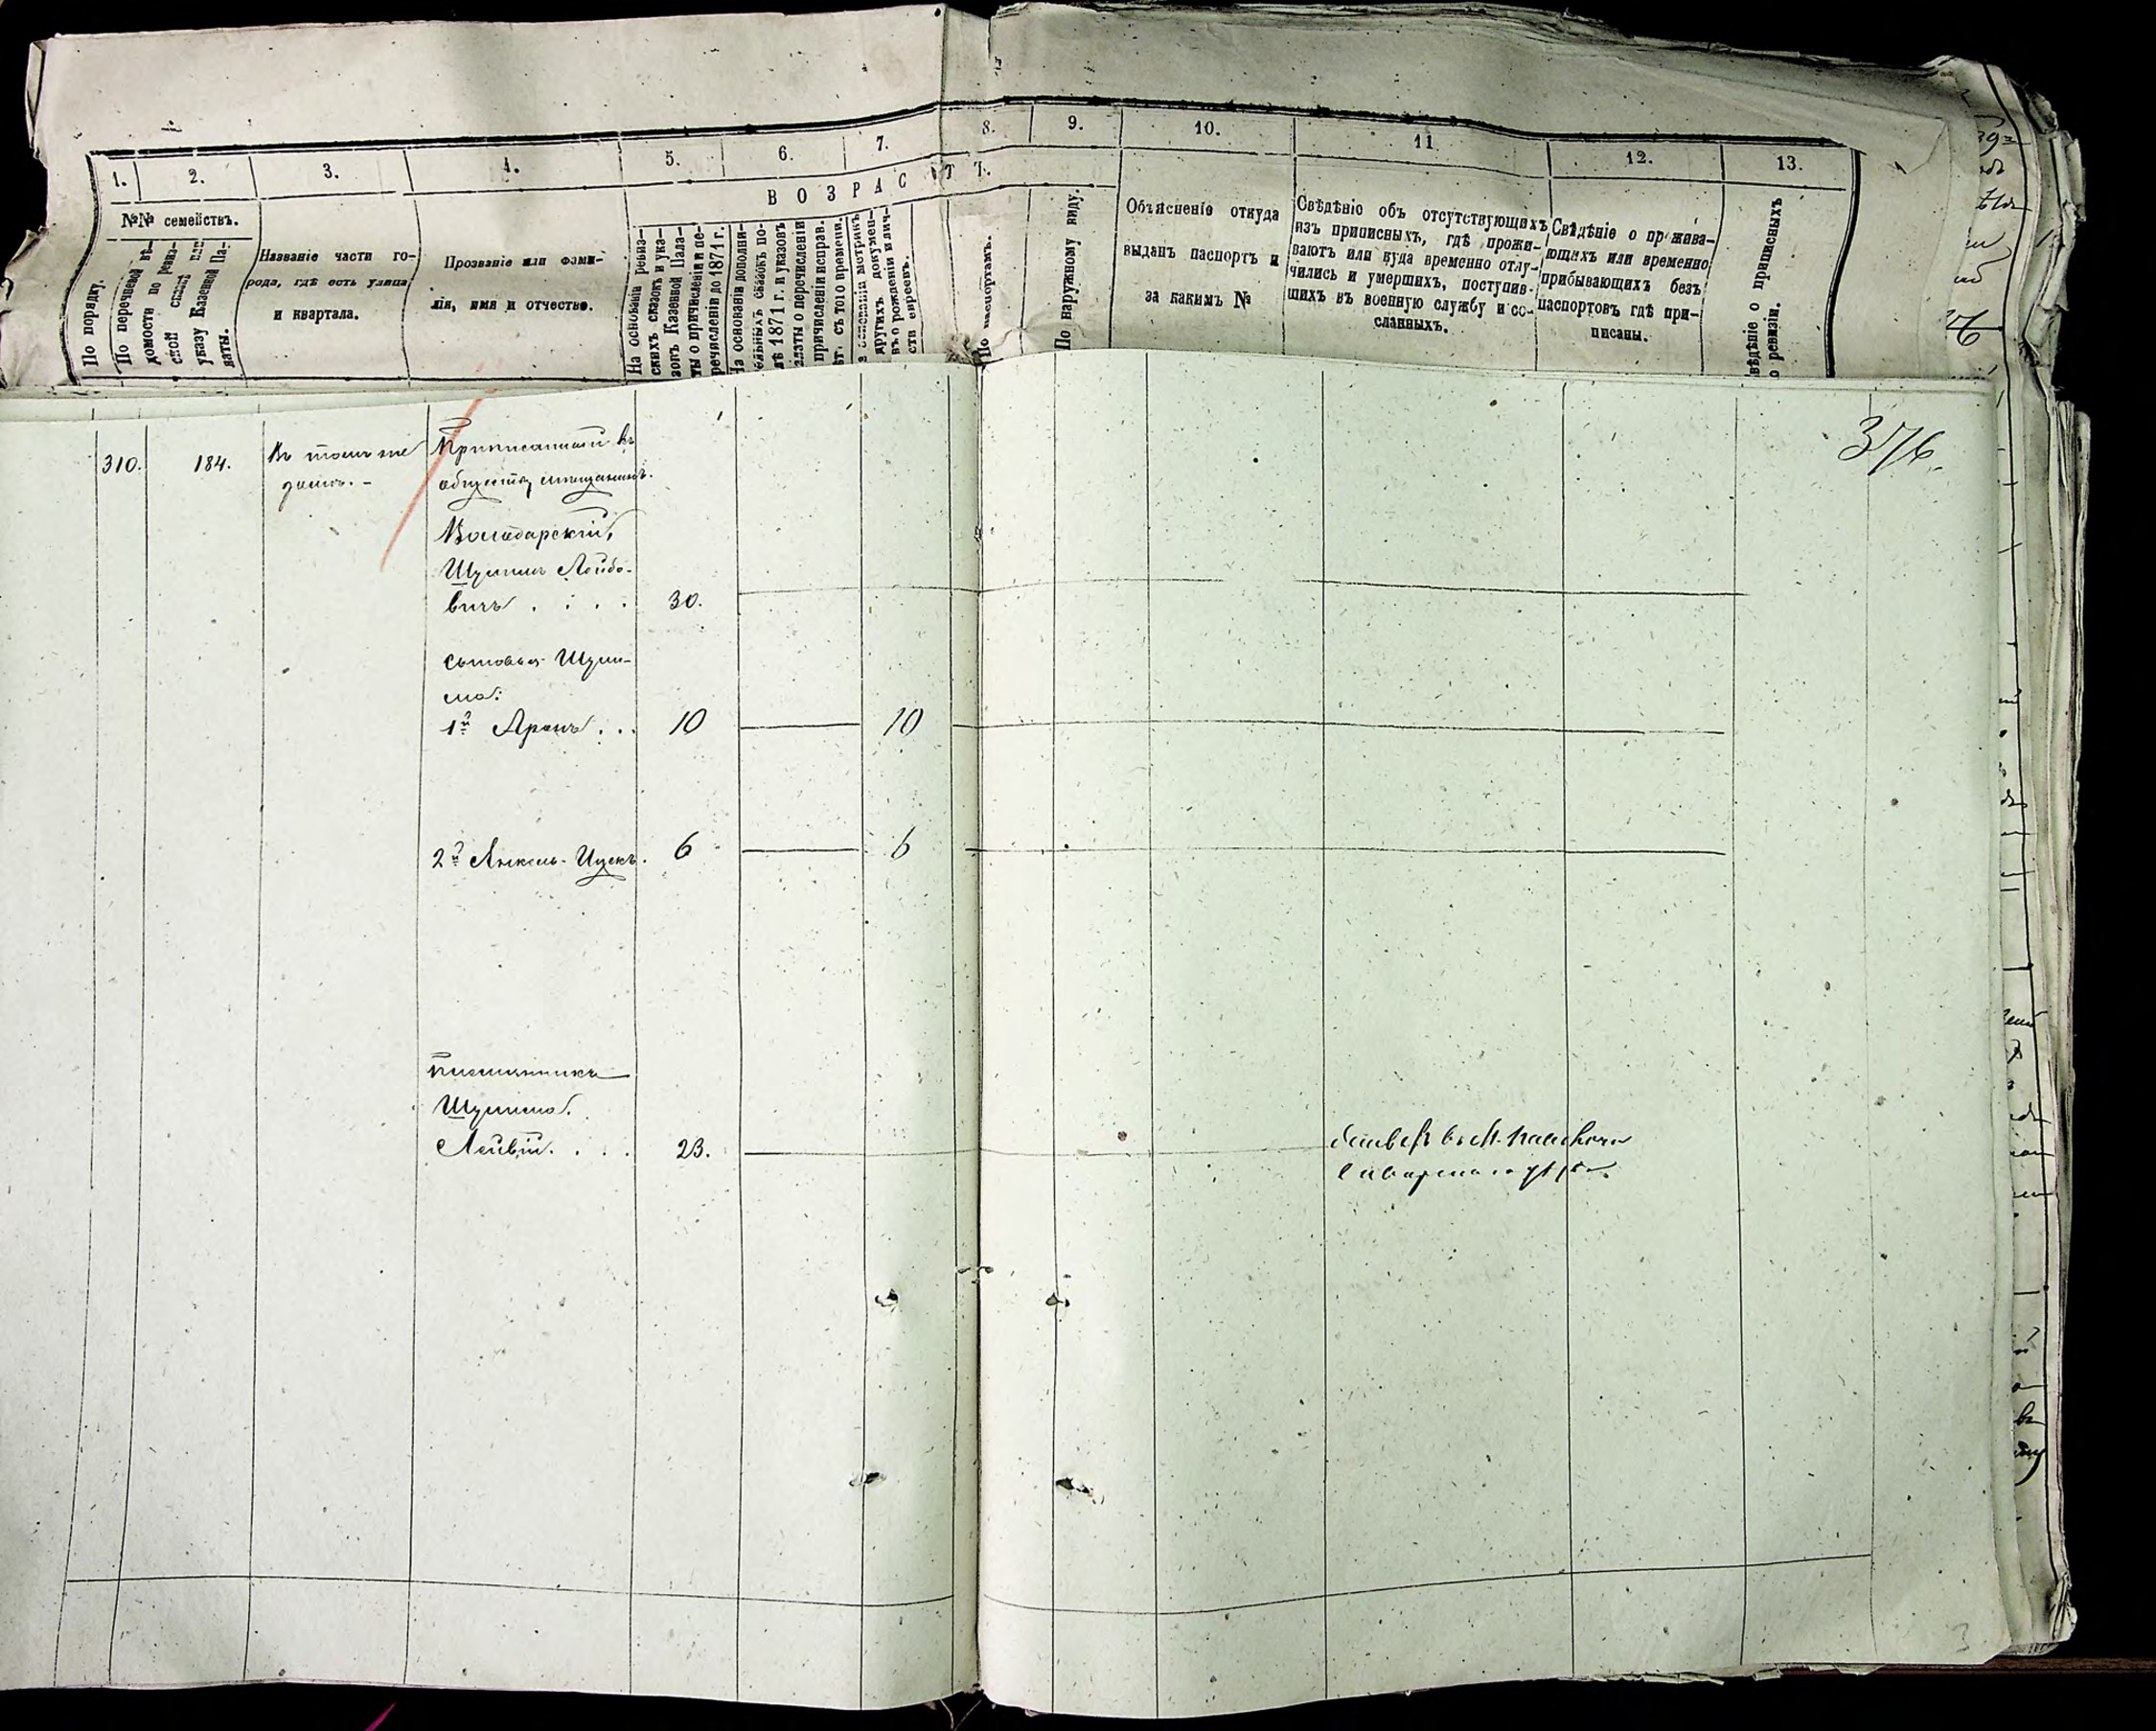 1. 2. 3. 4. 5. 6. 7. 8. 9. 10. 11. 12. 13.
ВОЗРАСТЪ.
№№ семействъ.
По порядку.
По перечневой вѣ-
домости по ревиз-
ской сказкѣ или
указу Казенной Па-
латы.
Названіе части го-
рода, гдѣ есть улица
и квартала.
Прозваніе или фами-
лія, имя и отчество.
На основаніи ревиз-
скихъ сказокъ и ука-
зовъ Казенной Пала-
ты о причисленіи и пе-
речисленіи до 1871 г.
На основаніи дополни-
тельныхъ сказокъ по-
слѣ 1871 г. и указовъ
палаты о перечисленіи
причисленіи исправ.
съ того времени.
На основаніи метрикъ
другихъ докумен-
въ о рожденіи и лич-
сти евреевъ.
По паспортамъ.
По наружному виду.
Объясненіе откуда
выданъ паспортъ и
за какимъ №
Свѣдѣніе объ отсутствующихъ
изъ приписныхъ, гдѣ прожи-
ваютъ или куда временно отлу-
чились и умершихъ, поступив-
шихъ въ военную службу и со-
сланныхъ.
Свѣдѣніе о прожива-
ющихъ или временно
прибывающихъ безъ
паспортовъ гдѣ при-
писаны.
Свѣдѣніе о приписныхъ
по ревизіи.
376.
310. 184. Въ томъ же Приписанный къ
домѣ. - обществу мѣщанинъ.
Володарскій,
Шулимъ Лейбо-
вичъ . . . . 30.
Сыновья Шули-
ма:
1й Аронъ . . . 10 10
2й Анкель-Ицекъ. 6 6
племянникъ
Шулима.
Лейвій. . . . 23.